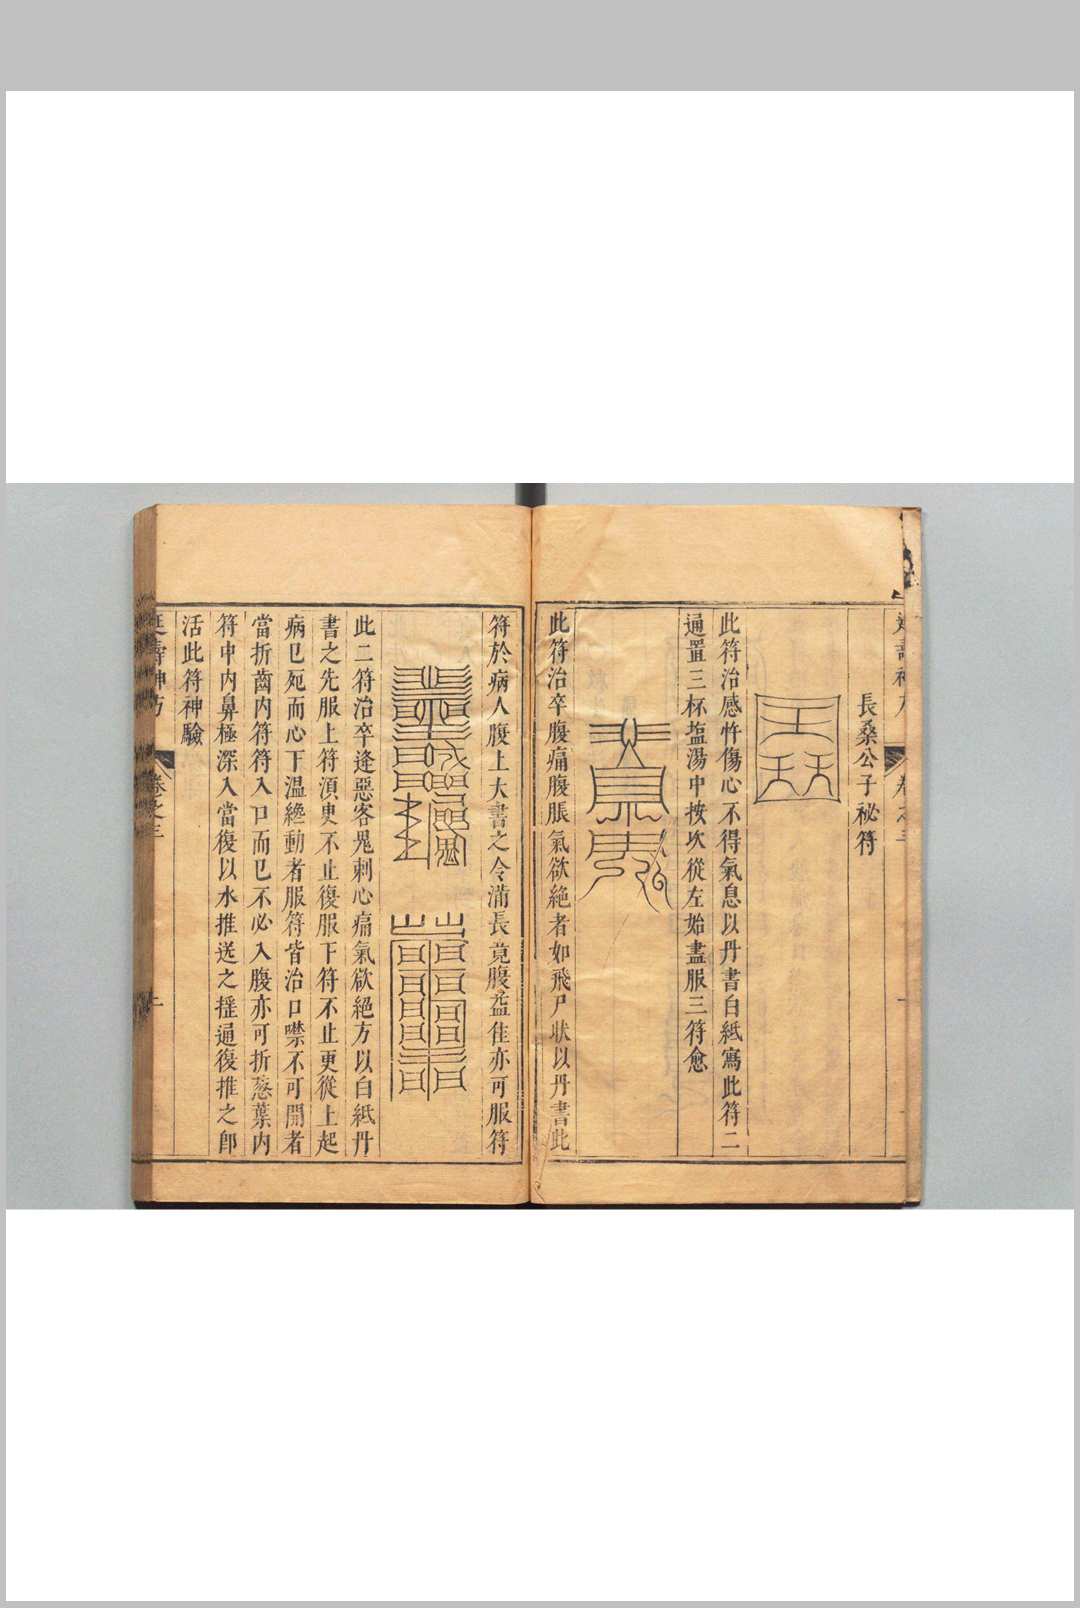 長桑公子秘符
此符治感忤傷心不得氣息以丹書白紙寫此符二
通置三杯塩湯中按次從左始盡服三符愈
此符治卒腹痛腹脹氣欲絶者如飛尸狀以丹書此
符於病人腹上大書之令滿長竟腹益佳亦可服符
此二符治卒逢惡客鬼刺心痛氣欲絶方以白紙丹
書之先服上符湏臾不止復服下符不止更從上起
病已死而心下温纔動者服符皆治口噤不可開者
當折齒内符符入口而已不必入腹亦可折葱葉内
符中内鼻極深入當復以水推送之揺通復推之卽
活此符神驗
延壽神方
卷之三